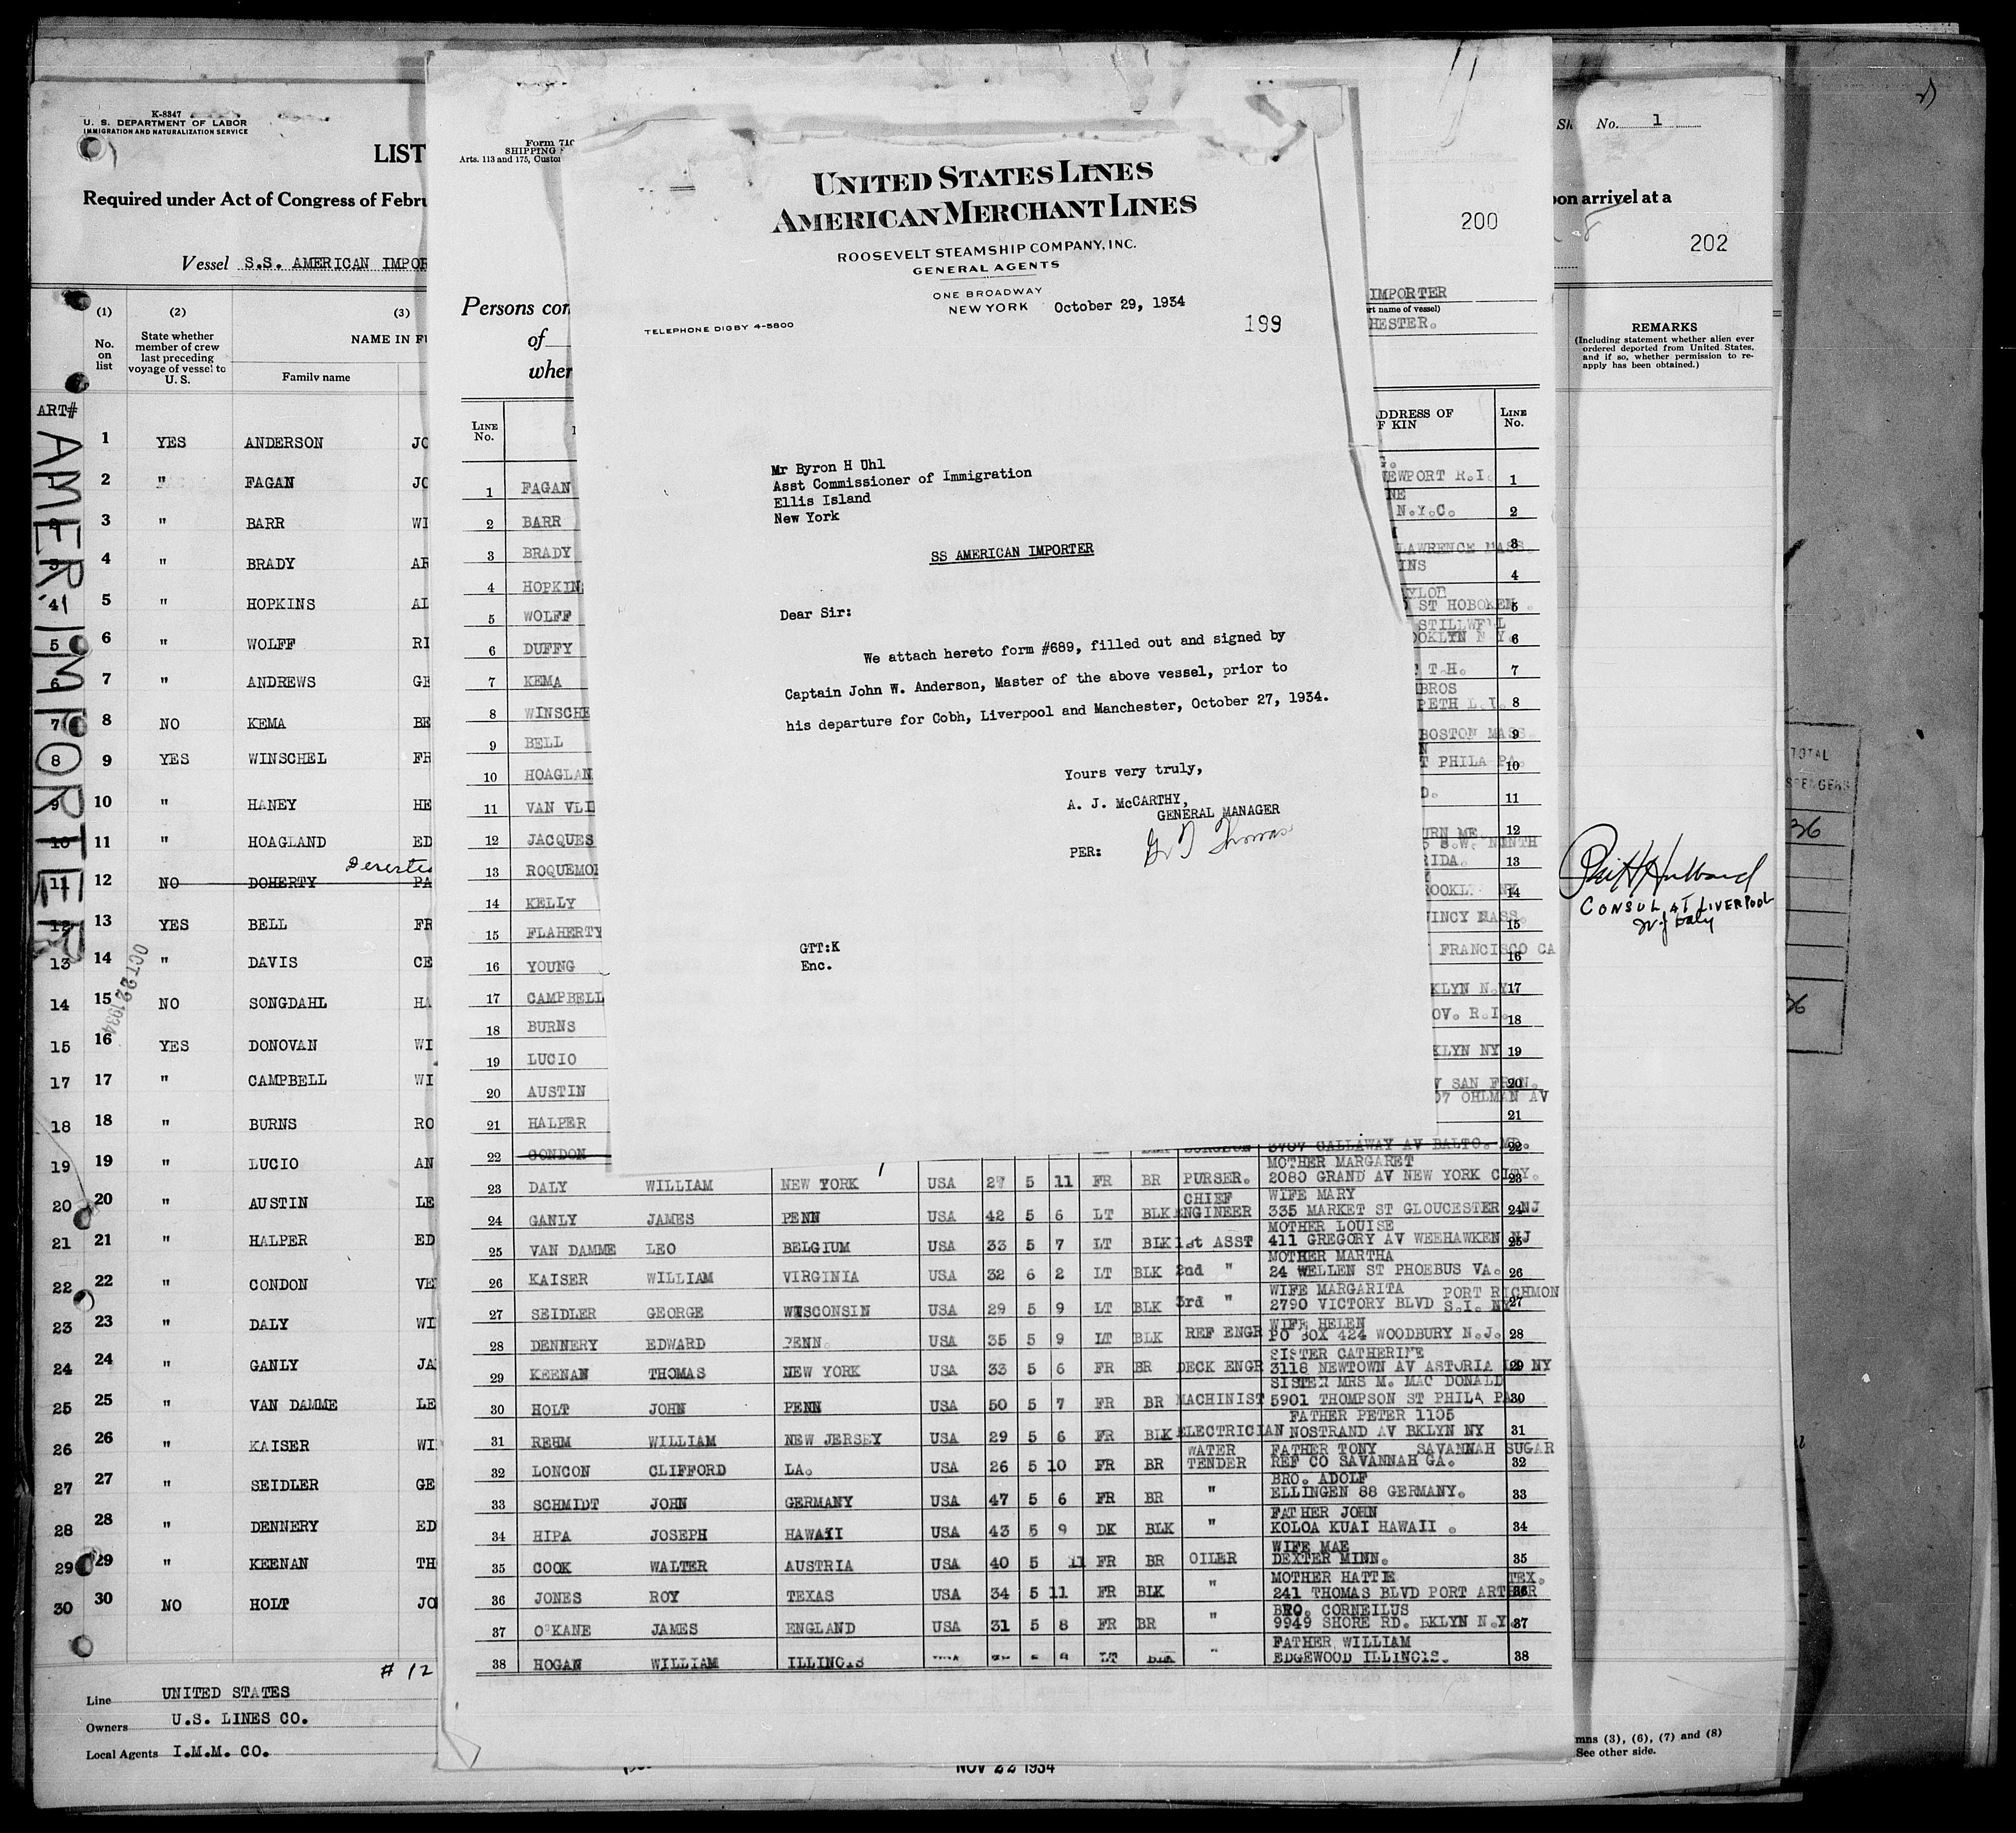 K-8347
U. S. DEPARTMENT OF LABOR
IMMIGRATION AND NATURALIZATION SERVICE
LIST
Required under Act of Congress of Febru
Vessel S.S. AMERICAN IMPOR
(1) (2) (3)
No. on list
State whether member of crew last preceding voyage of vessel to U. S.
NAME IN FU
Family name
ART#
AMER. IMPORTER
1 YES ANDERSON JO
2 " FAGAN JO
3 " BARR WI
4 " BRADY AR
5 " HOPKINS AL
6 " WOLFF RI
7 " ANDREWS GE
8 NO KEMA BE
9 YES WINSCHEL FR
10 " HANEY HE
11 " HOAGLAND ED
Deserted
12 NO DOHERTY PA
13 YES BELL FR
14 " DAVIS CE
15 NO SONGDAHL HA
16 YES DONOVAN WI
17 " CAMPBELL WI
18 " BURNS RO
19 " LUCIO AN
20 " AUSTIN LE
21 " HALPER ED
22 " CONDON VE
23 " DALY WI
24 " GANLY JA
25 " VAN DAMME LE
26 " KAISER WI
27 " SEIDLER GE
28 " DENNERY ED
29 " KEENAN TH
30 NO HOLT JO
OCT 22 1934
# 12
Line UNITED STATES
Owners U.S. LINES CO.
Local Agents I.M.M. CO.
Form 710
SHIPPING
Arts. 113 and 175, Custo
200
Persons con
of
wher
IMPORTER
rt name of vessel)
HESTER.
LINE No.
ADDRESS OF
F KIN
LINE No.
1 FAGAN NEWPORT R.I. 1
2 BARR N.Y.C. 2
3 BRADY LAWRENCE MASS 3
4 HOPKIN INS 4
5 WOLFF ST HOBOKEN. 5
6 DUFFY STILLWELL
OOKLYN N.Y. 6
7 KEMA T.H. 7
8 WINSCHE MBROS
PETH L.I. 8
9 BELL BOSTON MASS. 9
10 HOAGLAN T PHILA PA. 10
11 VAN VLI D. 11
12 JACQUES URN ME. 12
13 ROQUEMO S.W. NINTH
RIDA. 13
14 KELLY ROOKL NY 14
15 FLAHERTY UINCY MASS. 15
16 YOUNG FRANCISCO CA 16
17 CAMPBELL KLYN N.Y 17
18 BURNS OV. R.I. 18
19 LUCIO KLYN NY 19
20 AUSTIN SAN FRAN. 20
21 HALPER 07 OHLMAN AV 21
22 CONDON SURGEON 3707 CALLAWAY AV BALTO. MD. 22
23 DALY WILLIAM NEW YORK USA 27 5 11 FR BR PURSER. MOTHER MARGARET
2080 GRAND AV NEW YORK CITY. 23
24 GANLY JAMES PENN USA 42 5 6 LT BLK CHIEF ENGINEER WIFE MARY
335 MARKET ST GLOUCESTER NJ 24
25 VAN DAMME LEO BELGIUM USA 33 5 7 LT BLK 1st ASST MOTHER LOUISE
411 GREGORY AV WEEHAWKEN NJ 25
26 KAISER WILLIAM VIRGINIA USA 32 6 2 LT BLK 2nd " MOTHER MARTHA
24 WELLEN ST PHOEBUS VA. 26
27 SEIDLER GEORGE WISCONSIN USA 29 5 9 LT BLK 3rd " WIFE MARGARITA PORT RICHMON
2790 VICTORY BLVD S.I. NY 27
28 DENNERY EDWARD PENN. USA 35 5 9 LT BLK REF ENGR WIFE HELEN
PO BOX 424 WOODBURY N.J. 28
29 KEENAN THOMAS NEW YORK USA 33 5 6 FR BR DECK ENGR SISTER CATHERINE
3118 NEWTOWN AV ASTORIA LI NY 29
30 HOLT JOHN PENN USA 50 5 7 FR BR MACHINIST SISTER MRS M. MAC DONALD
5901 THOMPSON ST PHILA PA 30
31 REHM WILLIAM NEW JERSEY USA 29 5 6 FR BLK ELECTRICIAN FATHER PETER 1105
NOSTRAND AV BKLYN NY 31
32 LONCON CLIFFORD LA. USA 26 5 10 FR BR WATER TENDER FATHER TONY SAVANNAH SUGAR
REF CO SAVANNAH GA. 32
33 SCHMIDT JOHN GERMANY USA 47 5 6 FR BR " BRO. ADOLF
ELLINGEN 88 GERMANY. 33
34 HIPA JOSEPH HAWAII USA 43 5 9 DK BLK " FATHER JOHN
KOLOA KUAI HAWAII . 34
35 COOK WALTER AUSTRIA USA 40 5 11 FR BR OILER WIFE MAE
DEXTER MINN. 35
36 JONES ROY TEXAS USA 34 5 11 FR BLK " MOTHER HATTIE TEX.
241 THOMAS BLVD PORT ARTHUR 36
37 O'KANE JAMES ENGLAND USA 31 5 8 FR BR " BRO. CORNEILUS
9949 SHORE RD. BKLYN N.Y. 37
38 HOGAN WILLIAM ILLINOIS LT BLK " FATHER WILLIAM
EDGEWOOD ILLINOIS. 38
NOV 22 1934
UNITED STATES LINES
AMERICAN MERCHANT LINES
ROOSEVELT STEAMSHIP COMPANY, INC.
GENERAL AGENTS
ONE BROADWAY
NEW YORK October 29, 1934
TELEPHONE DIGBY 4-5800
199
Mr Byron H Uhl
Asst Commissioner of Immigration
Ellis Island
New York
SS AMERICAN IMPORTER
Dear Sir:
We attach hereto form #689, filled out and signed by
Captain John W. Anderson, Master of the above vessel, prior to
his departure for Cobh, Liverpool and Manchester, October 27, 1934.
Yours very truly,
A. J. McCARTHY,
GENERAL MANAGER
PER: G T Thomas
GTT:K
Enc.
Sh No. 1
on arrivel at a
202
REMARKS
(Including statement whether alien ever ordered deported from United States, and if so, whether permission to re-apply has been obtained.)
CONSUL AT LIVERPOOL
W J Daly
mns (3), (6), (7) and (8)
See other side.
TOTAL
SPENGERS
36
36